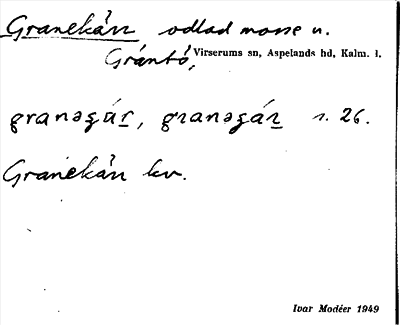 Granekån odlad mosse u.
Gråntó, Virserums sn, Aspelands hd, Kalm. l.
granəgár, granəgár s. 26.
Granekån kv.
Ivar Modéer 1949